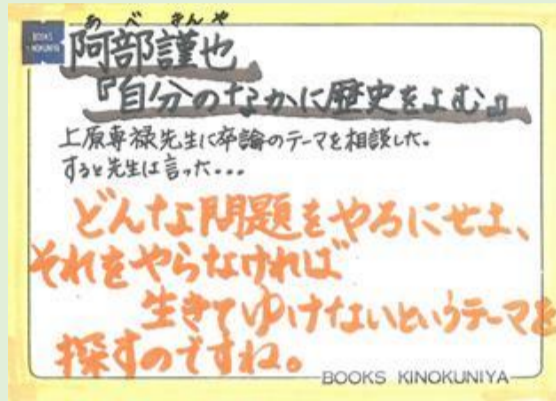 あべ きんや
BOOKS KINOKUNIYA
阿部謹也
『自分のなかに歴史をよむ』
上原専禄先生に卒論のテーマを相談した。
すると先生は言った...
どんな問題をやるにせよ、
それをやらなければ
生きてゆけないというテーマを
探すのですね。
BOOKS KINOKUNIYA